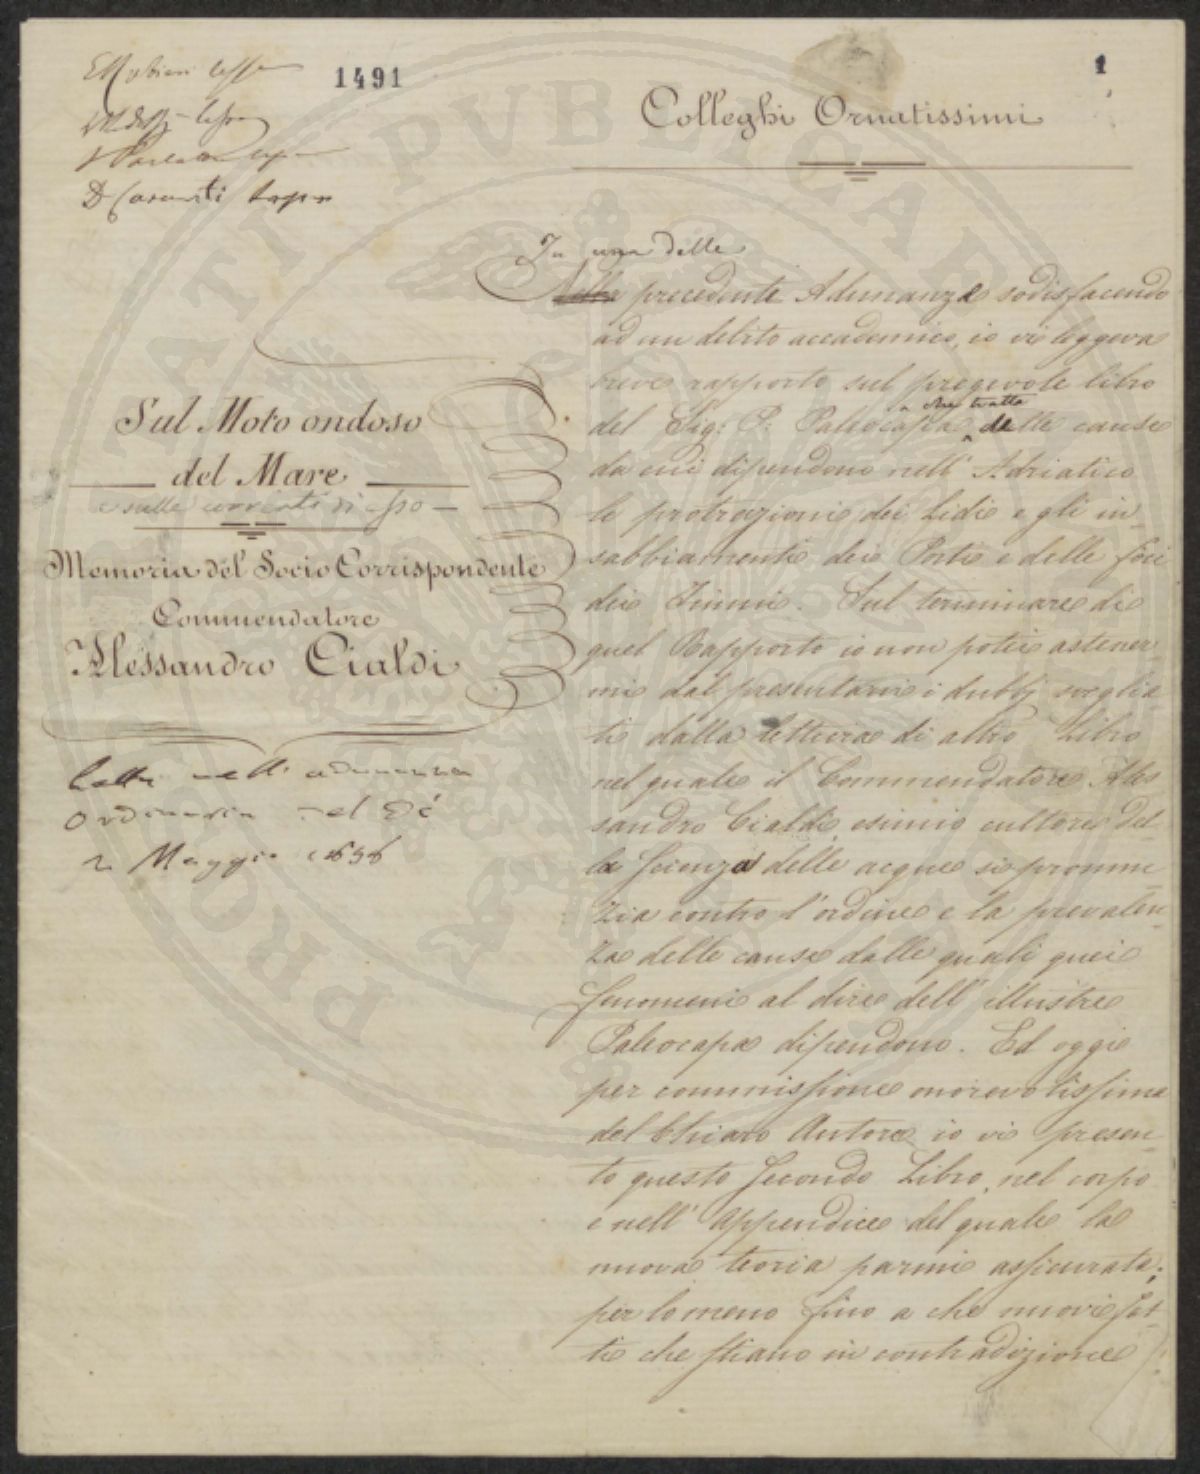 1491
1
D Casanti
Colleghi Ornatissimi
Sul Moto ondoso
del Mare
e sulle correnti di esso
Memoria del Socio Corrispondente
Commendatore
Alessandro Cialdi
Letta nell'adunanza
Ordinaria del dì
2 Maggio 1858
In una delle
Nella precedente Adunanza sodisfacendo
ad un debito accademico, io vi leggeva
breve rapporto sul pregevole libro
che tratta
del Sig: P: Paleocapa delle cause
da cui dipendono nell' Adriatico
le protrazioni dei Lidi e gli in_
sabbiamenti dei Porti e delle foci
dei Fiumi. Sul terminare di
quel Rapporto io non potei astener_
mi dal presentarvi i dubbj sveglia_
ti dalla lettura di altro Libro
nel quale il Commendatore Ales_
sandro Cialdi esimio cultore del_
la Scienza delle acque si pronun_
zia contro l'ordine e la prevalen_
za delle cause dalle quali quei
fenomeni al dire dell' illustre
Paleocapa dipendono. Ed oggi
per commissione onorevolissima
del Chiaro Autore io vi presen_
to questo Secondo Libro, nel corpo
e nell' Appendice del quale la
nuova teoria parmi assicurata;
per lo meno fino a che nuovi fat_
ti che stiano in contradizione